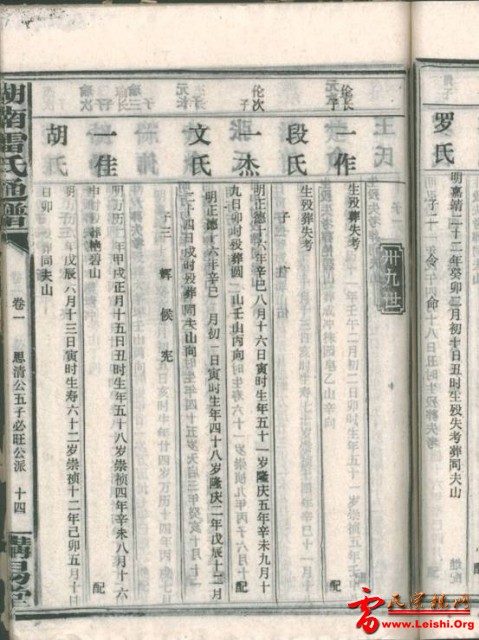 罗氏
明嘉靖二十二年癸卯二月初十日丑时生殁失考葬同夫山
子二 令 命
卅九世
伦长子
一作
生殁葬失考
配
段氏
生殁葬失考
子
伦次子
一杰
明正德十六年辛巳八月十六日寅时生年五十一岁隆庆五年辛未九月十
九日卯时殁葬圆山壬山丙向
配
文氏
明正德十六年辛巳 月初一日寅时生年四十八岁隆庆二年戊辰十二月
二十四日戌时殁葬同夫山向
子三 辉 候 宪
一佳
明万历二年甲戌正月十五日丑时生年五十八岁崇祯四年辛未八月十六
申时殁葬艳碧山
配
胡氏
戊辰六月十三日寅时生寿六十二岁崇祯十二年己卯五月十日
日卯 葬同夫山
湖南雷氏通谱
卷一
思清公五子必旺公派
十四
讲易堂
www.Leishi.Org